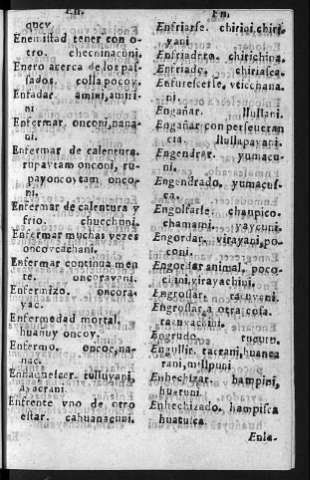 En.
quey.
Enemistad tener con o-
tro. checninacuni.
Enero acerca de los pas-
sados. colla pocoy.
Enfadar amini, amiri-
ni
Enfermar. onconi, nana-
ni.
Enfermar de calentura.
rupavtam onconi, ru-
payoncoy tam onco-
ni.
Enfermar de calentura y
frio. chucchuni.
Enfermar muchas vezes
oncoycachani.
Enfermar continuamen
te. oncoravani.
Enfermizo. oncora-
yac.
Enfermedad mortal.
huañuy oncoy.
Enfermo. oncoc, na-
nac.
Enflaquescer. tulluyani,
Enfrente vno de otro
estar. cahuanacuni.
En.
Enfriarse. chirini, chiri-
yani
Enfriadera. chirichina.
Enfriado. chiriasca.
Enfurescerse,
ni.
Engañar. llullani.
Engañar con perseueran
cia. llullapayani.
Engendrar. yumacu-
ni.
Engendrado. yumacus-
ca.
Engolfarse. chaupico-
chamanni yaycuni.
Engordar. virayani, po-
coni.
Engordar animal. poco-
chini, virayachini.
Engrossar. racuyani.
Engrossar a otra cosa.
racuyachini.
Engrudo.
Engullir. racrani, huanca
rani, millpuni
Enhechizar. hampini,
huatuni.
Enhechizado. hampisca
huatusca.
Enla-